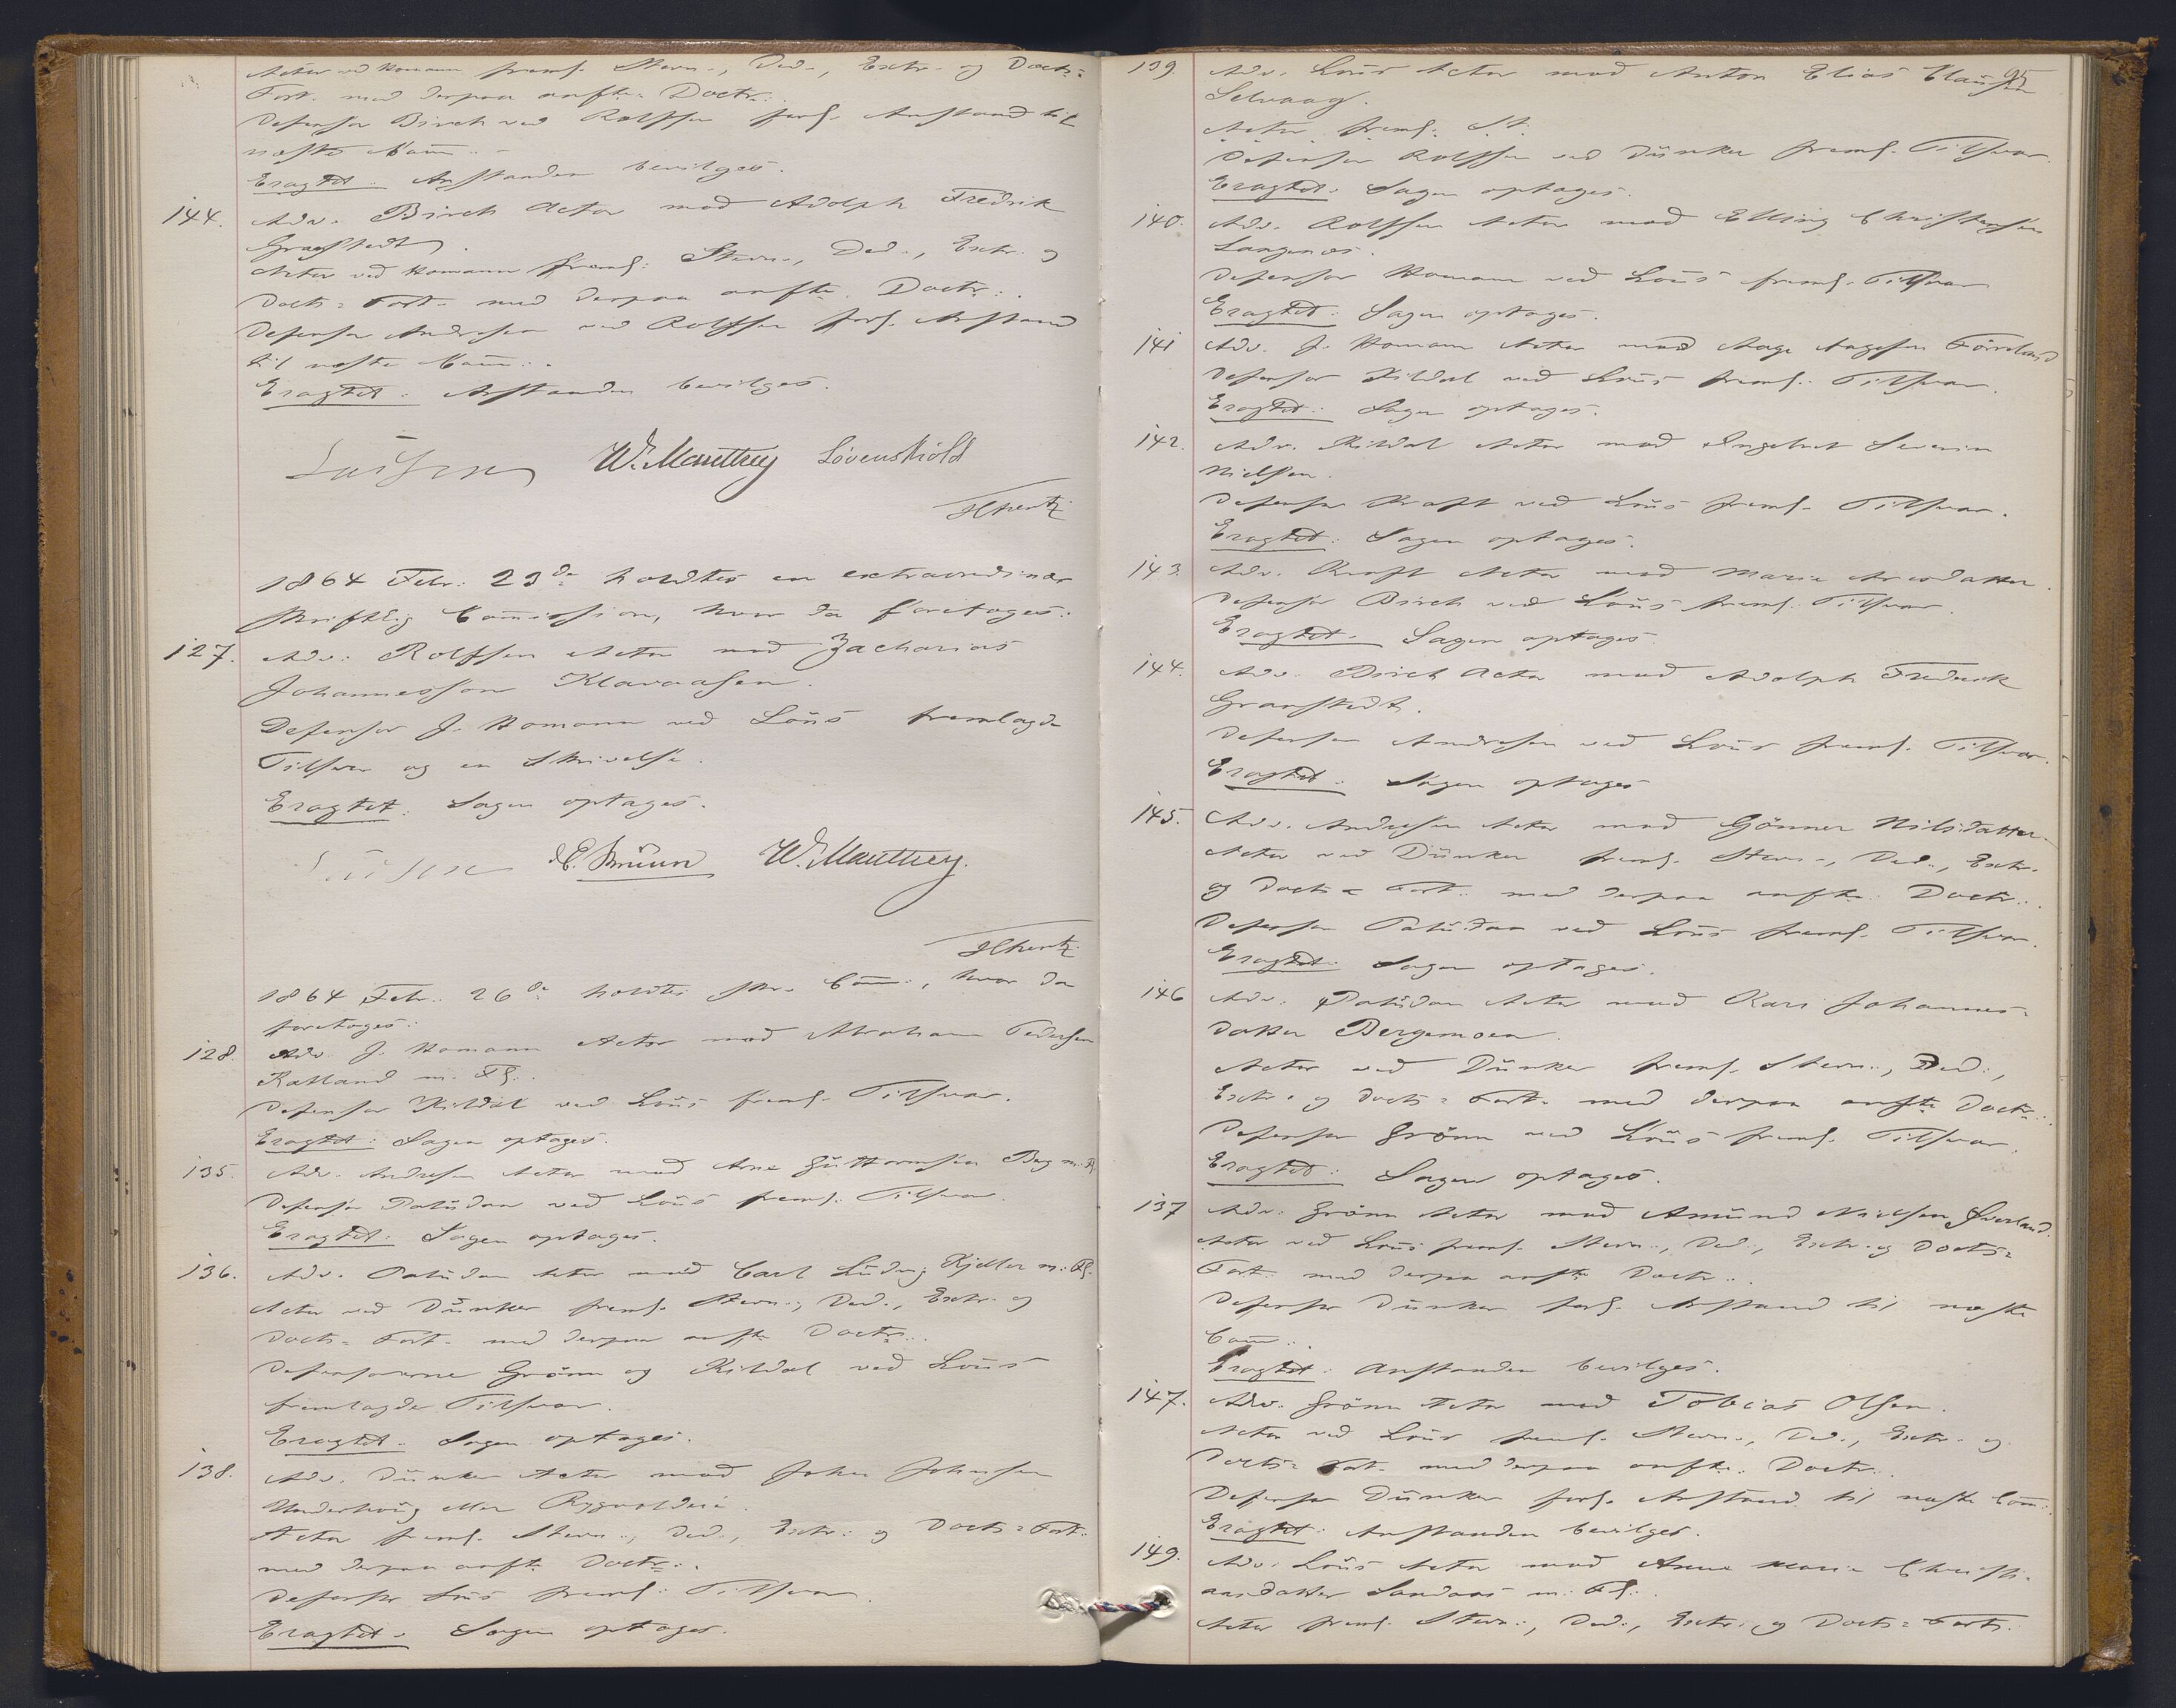 Actor ved Homann freml. Stevn., Ded., Extr. og Docts=
Fort. med derpaa anfte. Doctr..
Defensor Birch ved Rolfsen forl. Anstand til
næste Com..
Eragtet: Anstanden bevilges.
144. Adv. Birch Actor mod Adolph Fredrik
Granstedt.
Actor ved Homann freml. Stevn., Ded., Extr. og
Docts= Fort. med derpaa anfte. Doctr..
Defensor Andresen ved Rolfsen forl. Anstand
til næste Com..
Eragtet: Anstanden bevilges.
Lasson W. Manthey Løvenskiold
Hhentz
1864 Febr. 23de holdtes en extraordinær
skriftlig Commission, hvor da foretoges:
127. Adv. Rolfsen Actor mod Zacharias
Johannesson Klavaasen.
Defensor J. Homann ved Lous fremlagde
Tilsvar og en Skrivelse.
Eragtet: Sagen optages.
Lasson E. Bruun W. Manthey.
Hhentz
1864 Febr. 26de holdtes skr. Com., hvor da
foretoges:
128. Adv. J. Homann Actor mod Abraham Pedersen
Ratland m. Fl.
Defensor Kildal ved Lous freml. Tilsvar.
Eragtet: Sagen optages.
135. Adv. Andresen Actor mod Arne Guttormsen Bag m. Fl.
Defensor Paludan ved Lous freml. Tilsvar.
Eragtet: Sagen optages.
136. Adv. Paludan Actor mod Carl Ludvig Kjeller m. Fl.
Actor ved Dunker freml. Stevn., Ded., Extr. og
Docts= Fort. med derpaa anfte. Doctr..
Defensorerne Grönn og Kildal ved Lous
fremlagde Tilsvar.
Eragtet: Sagen optages.
138. Adv. Dunker Actor mod John Johnsen
Underhoug eller
Actor freml. Stevn., Ded., Extr. og Docts= Fort.
med derpaa anfte. Doctr..
Defensor Lous freml. Tilsvar.
Eragtet: Sagen optages.
95
139 Adv. Lous Actor mod Anton Elias Clausen
Selvaag.
Actor freml. St.
Defensor Rolfsen ved Dunker freml. Tilsvar.
Eragtet: Sagen optages.
140. Adv. Rolfsen Actor mod Elling Christensen
Langenæs.
Defensor Homann ved Lous freml. Tilsvar
Eragtet: Sagen optages.
141 Adv. J. Homann Actor mod Aage Aagesen Förreland
Defensor Kildal ved Lous freml. Tilsvar.
Eragtet: Sagen optages.
142. Adv. Kildal Actor mod Ingebret Severin
Nielsen.
Defensor Kraft ved Lous freml. Tilsvar.
Eragtet: Sagen optages.
143. Adv. Kraft Actor mod Marie Arvedatter.
Defensor Birch ved Lous freml. Tilsvar.
Eragtet: Sagen optages.
144. Adv. Birch Actor mod Adolph Fredrik
Granstedt.
Defensor Andresen ved Lous freml. Tilsvar.
Eragtet: Sagen optages
145. Adv. Andresen Actor mod Gönner Nilsdatter
Actor ved Dunker freml. Stevn., Ded., Extr.
og Docts= Fort. med derpaa anfte. Doctr..
Defensor Paludan ved Lous freml. Tilsvar.
Eragtet: Sagen optages.
146 Adv. Paludan Actor mod Kari Johannes=
datter Bergemoen.
Actor ved Dunker freml. Stevn., Ded.,
Extr. og Docts= Fort. med derpaa anfte. Doctr..
Defensor Grönn ved Lous freml. Tilsvar.
Eragtet: Sagen optages.
137 Adv. Grönn Actor mod Amund Nielsen Øverland.
Actor ved Lous freml. Stevn., Ded., Extr. og Docts=
Fort. med derpaa anfte. Doctr..
Defensor Dunker forl. Anstand til næste
Com..
Eragtet: Anstanden bevilges.
147. Adv. Grönn Actor mod Tobias Olsen.
Actor ved Lous freml. Stevn., Ded., Extr. og
Docts= Fort. med derpaa anfte. Doctr..
Defensor Dunker forl. Anstand til næste Com.
Eragtet: Anstanden bevilges.
149. Adv. Lous Actor mod Anne Marie Christi=
ansdatter Sandaas m. Fl.
Actor freml. Stevn., Ded., Extr. og Docts= Fort.